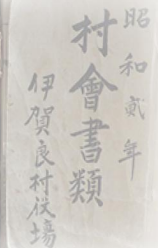 昭和貮年
村會書類
伊賀良村役場